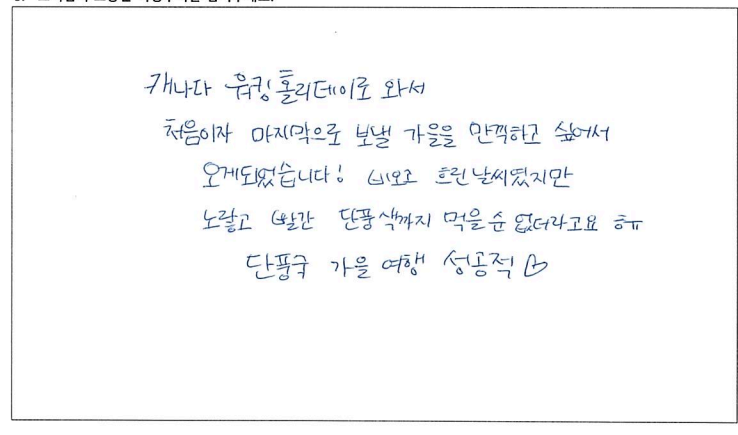 캐나다 워킹홀리데이로 와서
처음이자 마지막으로 보낼 가을을 만끽하고 싶어서
오게되었습니다! 비오고 흐린날씨였지만
노랗고 빨간 단풍색까지 먹을순 없더라고요 ㅎㅠ
단풍국 가을 여행 성공적